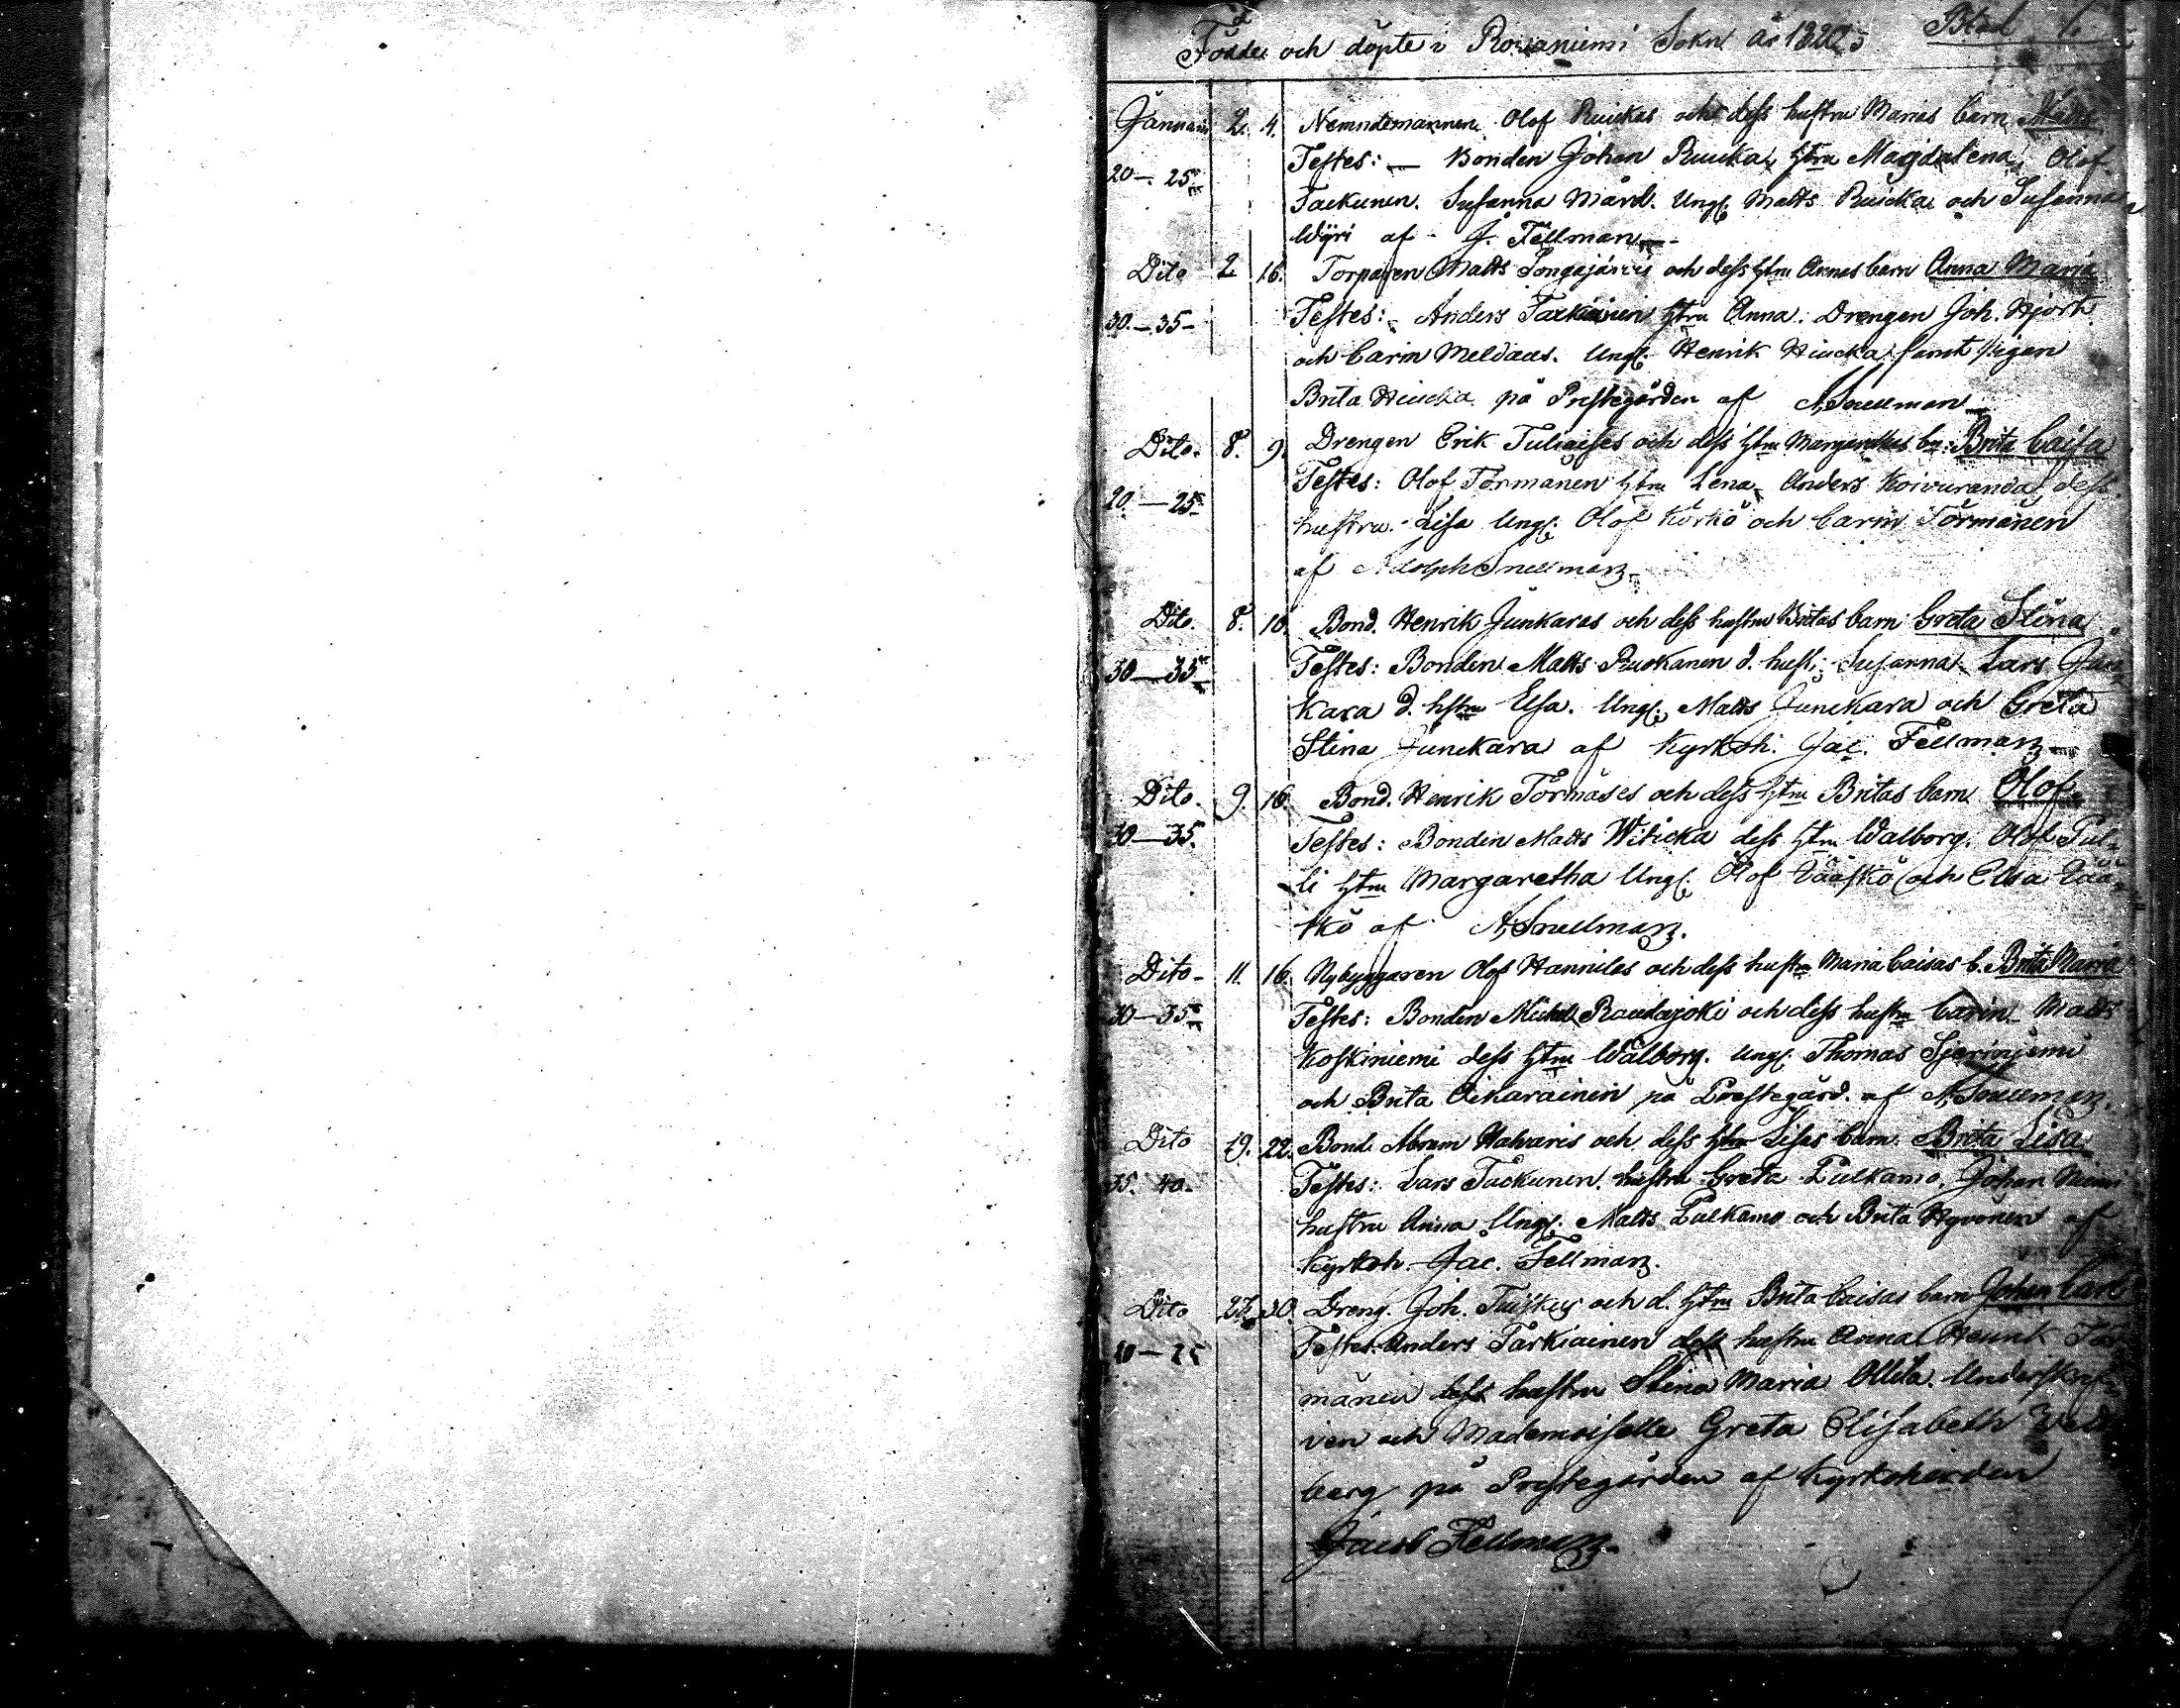 Födde och döpte i Rovaniemi Sokn år 1820 Blad 1.
Januari 2. 4. Nemndemannen Olof Ruickas och dess hustru Marias barn Matts
Testes: — Bonden Johan Ruicka, hstru Magdalena, Olof
20 — 25 Tackunen. Susanna Mård. Ungl. Matts Ruicka och Susanna
Wÿri af J. Fellman
Dito 2 16. Torparen Matts Songajärvis och dess hstru Annas barn Anna Maria
30 — 35 Testes: Anders Tarkiainen hstru Anna. Drengen Joh. Hjorth
och Carin Meldaus. Ungl. Henrik Hiucka samt pigan
Brita Hiucka på Prestegården af A. Snellman
Dito. 8. 9. Drengen Erik Tuliaises och dess hstru Margarethas bn: Brita Caisa
20. — 25 Testes: Olof Törmänen hstru Lena, Anders Koivuranda, dess
hustru Lisa Ungl. Olof Körkö och Carin Törmänen
af Adolph Snellman
Dito. 8. 10. Bond. Henrik Junkaras och dess hustru Britas barn Greta Stina
30 — 35 Testes: Bonden Matts Ruokanen d. hust. Susanna Lars Jun
kara d. hstru Elsa. Ungl. Matts Junckara och Greta
Stina Junckara af Kyrkoh. Jac. Fellman
Dito. 9. 16. Bond. Henrik Törmäses och dess hstru Britas barn Olof
30 — 35. Testes: Bonden Matts Witicka dess hstru Walborg. Olof Pul-
li hstru Margaretha Ungl. Olof Vääskö och Elsa Vää-
skö af A. Snellman.
Dito 11. 16. Nybyggaren Olof Hanniles och dess hustru Maria Caisas b. Brita Maria
30 — 35 Testes: Bonden Michel Raudajoki och dess hustru Carin. Matts
Koskiniemi dess hstru Walborg. Ungl. Thomas
och Brita Aikarainen på Prestegård. af A. Snellman.
Dito 19. 22. Bond. Abram Halvaris och dess hstru Lisas barn. Brita Lisa
35. 40. Testes: Lars Tackunen. hustru Greta Pulkamo, Johan Niemi
hustru Anna Ungl. Matts Pulkamo och Brita Hyvönen af
Kyrkoh. Jac. Fellman.
Dito 27. 30. Dreng. Joh. och d. hstru Brita Caisas barn Johan Carl
Testes: Anders Tarkiainen dess hustru Anna Henrik Tör
mänen dess hustru Stina Maria Ollila. Underskrif-
ven och Mademoiselle Greta Elisabeth
berg på Prestegården af Kyrkoherden
Jacob Fellman.